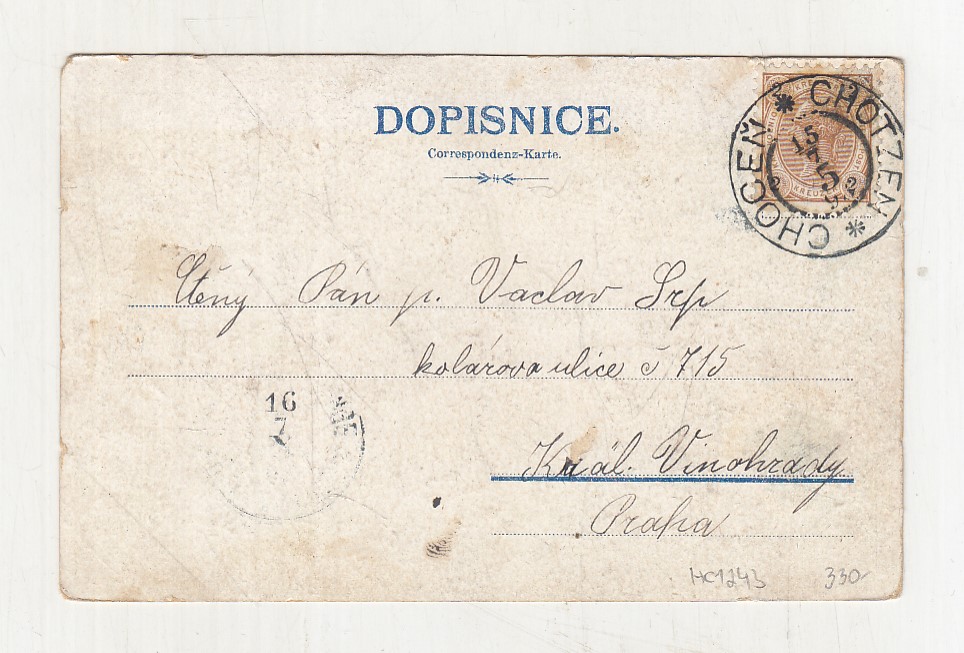 DOPISNICE.
Correspondenz-Karte.
CHOTZEN * CHOCEŇ *
15
7
5
2 KREUZER 2
Ctěný Pán p. Vaclav Srp
kolárova ulice č 715
16
7
Král. Vinohrady
Praha
HC1243 330-